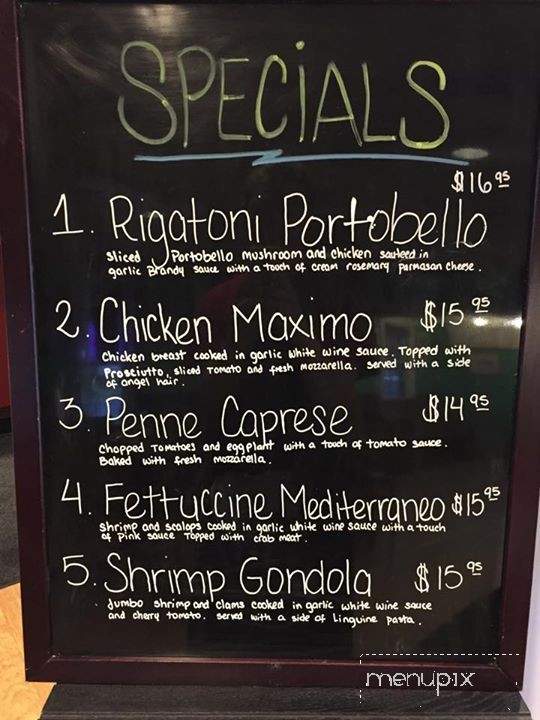 SPECiALS
$16 95
1. Rigatoni Portobello
sliced Portobello mushroom and chicken sauteed in
garlic Brandy sauce with a tooch of cream rosemary parmasan cheese.
2. Chicken Maximo $15 95
Chicken breast cooked in garlic white wine sauce. Topped with
Prosciutto, sliced Tomato and fresh mozzarella. served with a side
of angel hair.
3. Penne Caprese $14 95
Chopped Tomatoes and eggplant with a touch of tomato sauce.
Baked with fresh mozzarella.
4. Fettuccine Mediterraneo $15 95
Shrimp and scalops cooked in garlic white wine sauce with a touch
of Pink sauce Topped with crab meat.
5. Shrimp Gondola $15 95
Jumbo shrimp and clams cooked in garlic white wine sauce
and cherry tomato. served with a side of Linguine pasta.
menupix